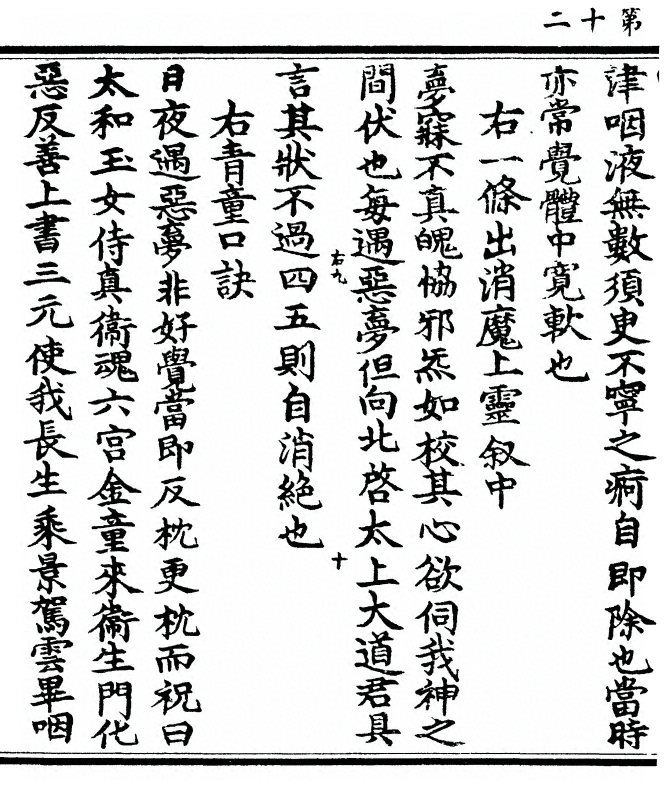 第十二
津咽液無數須臾不寧之痾自即除也當時
亦常覺體中寬軟也
右一條出消魔上靈叙中
夢寐不真魄協邪炁如校其心欲伺我神之
間伏也每遇惡夢但向北啓太上大道君具
右九
言其狀不過四五則自消絶也
十
右青童口訣
日夜遇惡夢非好覺當即反枕更枕而祝曰
太和玉女侍真衞魂六宫金童來衞生門化
惡反善上書三元使我長生乘景駕雲畢咽